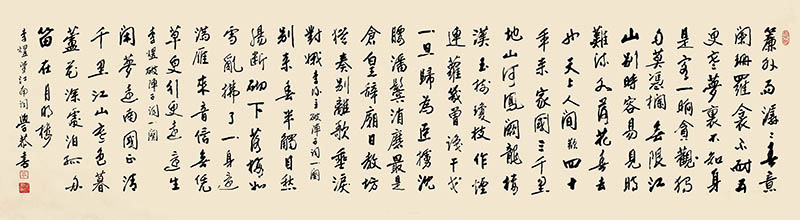 簾外雨潺潺春意
闌珊羅衾不耐五
更寒夢裏不知身
是客一晌貪觀獨
自莫憑欄無限江
山別時容易見時
難流水落花春去
也天上人間 四十
年來家國三千里
地山河鳳闕龍樓
漢玉樹瓊枝作煙
連蘿幾曾識干戈
一旦歸為臣虜沈
腰潘鬢消磨最是
倉皇辭廟日教坊
猶奏別離歌垂淚
對娥 李後主破陣子詞一闋
別來春半觸目愁
腸斷砌下落梅如
雪亂拂了一身還
滿雁來音信無憑
草更行更遠還生
李煜破陣子詞一闋
閑夢遠南國正清
千里江山寒色暮
蘆花深處泊孤舟
笛在月明樓
李煜望江南詞 學恭書